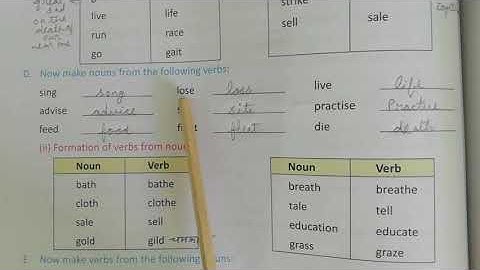 great
sad
on the
death of
our
near one
live life
run race
go gait
strike
sell sale
D. Now make nouns from the following verbs:
sing song lose loss live life
advise advice s site practise Practice
feed food fl t fleet die death
(ii) Formation of verbs from noun
Noun Verb
bath bathe
cloth clothe
sale sell
gold gild चमक
Noun Verb
breath breathe
tale tell
education educate
grass graze
E Now make verbs from the following nouns: